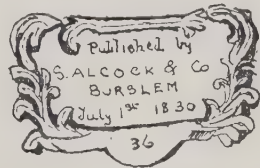 Published by
S. ALCOCK & Co
BURSLEM
July 1st 1830
36